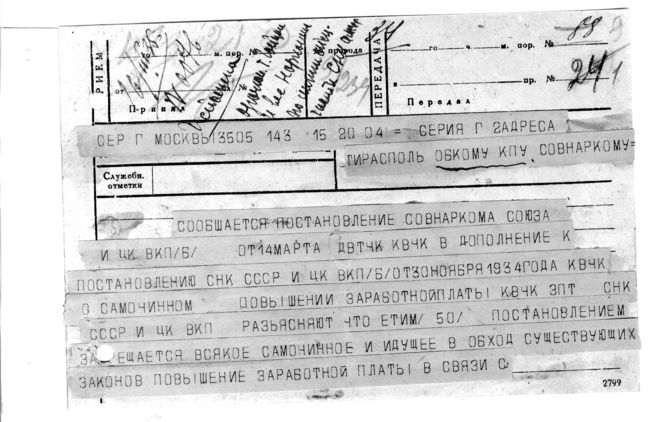 ПРИЕМ
го
м. пор. №
города
го
ч.
м. пор. №
88
от
№
в
пр. №
24
Принял
ПЕРЕДАЧА
Передал
СЕР Г МОСКВЫ 3505 143 15 20 04 = СЕРИЯ Г 2АДРЕСА
ТИРАСПОЛЬ ОБКОМУ КПУ СОВНАРКОМУ=
Служебн.
отметки
СООБШАЕТСЯ ПОСТАНОВЛЕНИЕ СОВНАРКОМА СОЮЗА
И ЦК ВКП/Б/ ОТ14МАРТА ДВТЧК КВЧК В ДОПОЛНЕНИЕ К
ПОСТАНОВЛЕНИЮ СНК СССР И ЦК ВКП/Б/ОТ3ОНОЯБРЯ1934ГОДА КВЧК
О САМОЧИННОМ ДОВЫШЕНИИ ЗАРАБОТНОЙПЛАТЫ КВЧК ЗПТ СНК
СССР И ЦК ВКП РАЗЬЯСНЯЮТ ЧТО ЕТИМ/ 50/ ПОСТАНОВЛЕНИЕМ
ЗАПРЕЩАЕТСЯ ВСЯКОЕ САМОЧИННОЕ И ИДУЩЕЕ В ОБХОД СУЩЕСТВУЮЩИХ
ЗАКОНОВ ПОВЫШЕНИЕ ЗАРАБОТНОЙ ПЛАТЫ В СВЯЗИ С
2799